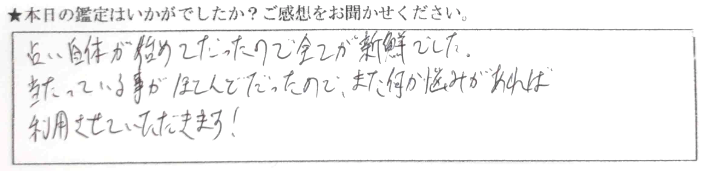 ★本日の鑑定はいかがでしたか？ご感想をお聞かせください。
占い自体が始めてだったので全てが新鮮でした。
当たっている事がほとんどだったので、また何か悩みがあれば
利用させていただきます！